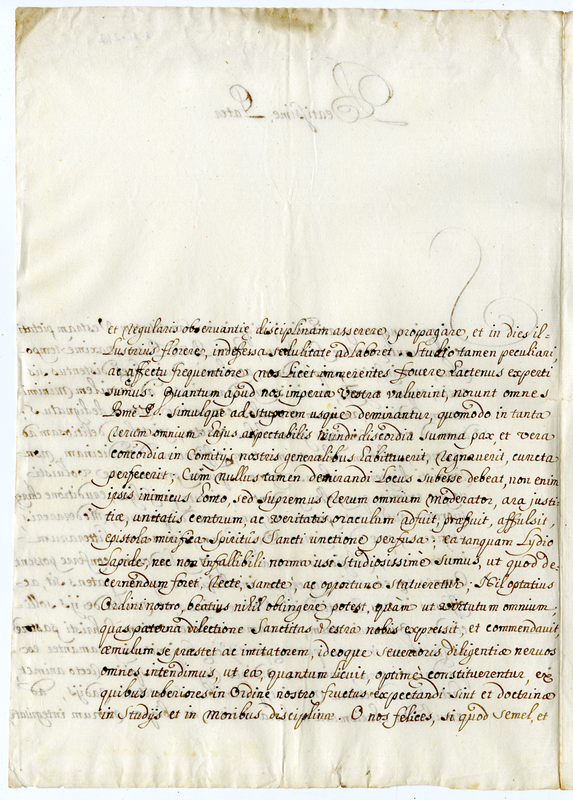 et Regularis observantię disciplinam asserere, propagare, et in dies il-
lustrius florere, indefessa sedulitate adlaboret. Studio tamen peculiari,
ac affectu frequentiore nos licèt immerentes fovere hactenus experti
sumus. Quantum apud nos imperia Vestra valuerint, norunt omnes
Bme Pr. simulque ad stuporem usque demirantur, quomodo in tanta
rerum omnium hujus aspectabilis mundi discordia summa pax et vera
concordia in Comitijs nostris generalibus habituerit, regnaverit, cuncta
perfecerit; Cùm nullus tamen demirandi locus subesse debeat, non enim
ipsis inimicus homo, sed supremus rerum omnium Moderator, ara justi-
tiæ, unitatis centrum, ac veritatis oraculum adfuit, præfuit, affulsit,
epistola mirifica Spiritus Sancti unctione perfusa: eâ tanquam Lydio
lapide, nec non infallibili norma usi studiosissimè sumus, ut quod de-
cernendum foret, rectè, sanctè, ac opportunè statueretur; Nil optatius
Ordini nostro, beatius nihil obtingere potest, quam ut virtutum omnium,
quas paterna dilectione Sanctitas Vestra nobis expressit, et commendavit
æmulum se præstet ac imitatorem, ideoque severioris diligentiæ nervos
omnes intendimus, ut ea, quantum licuit, optimè constituerentur, ex
quibus uberiores in Ordine nostro fructus expectandi sint et doctrinæ
in Studijs et in moribus disciplinæ. O nos felices, si quod semel, et